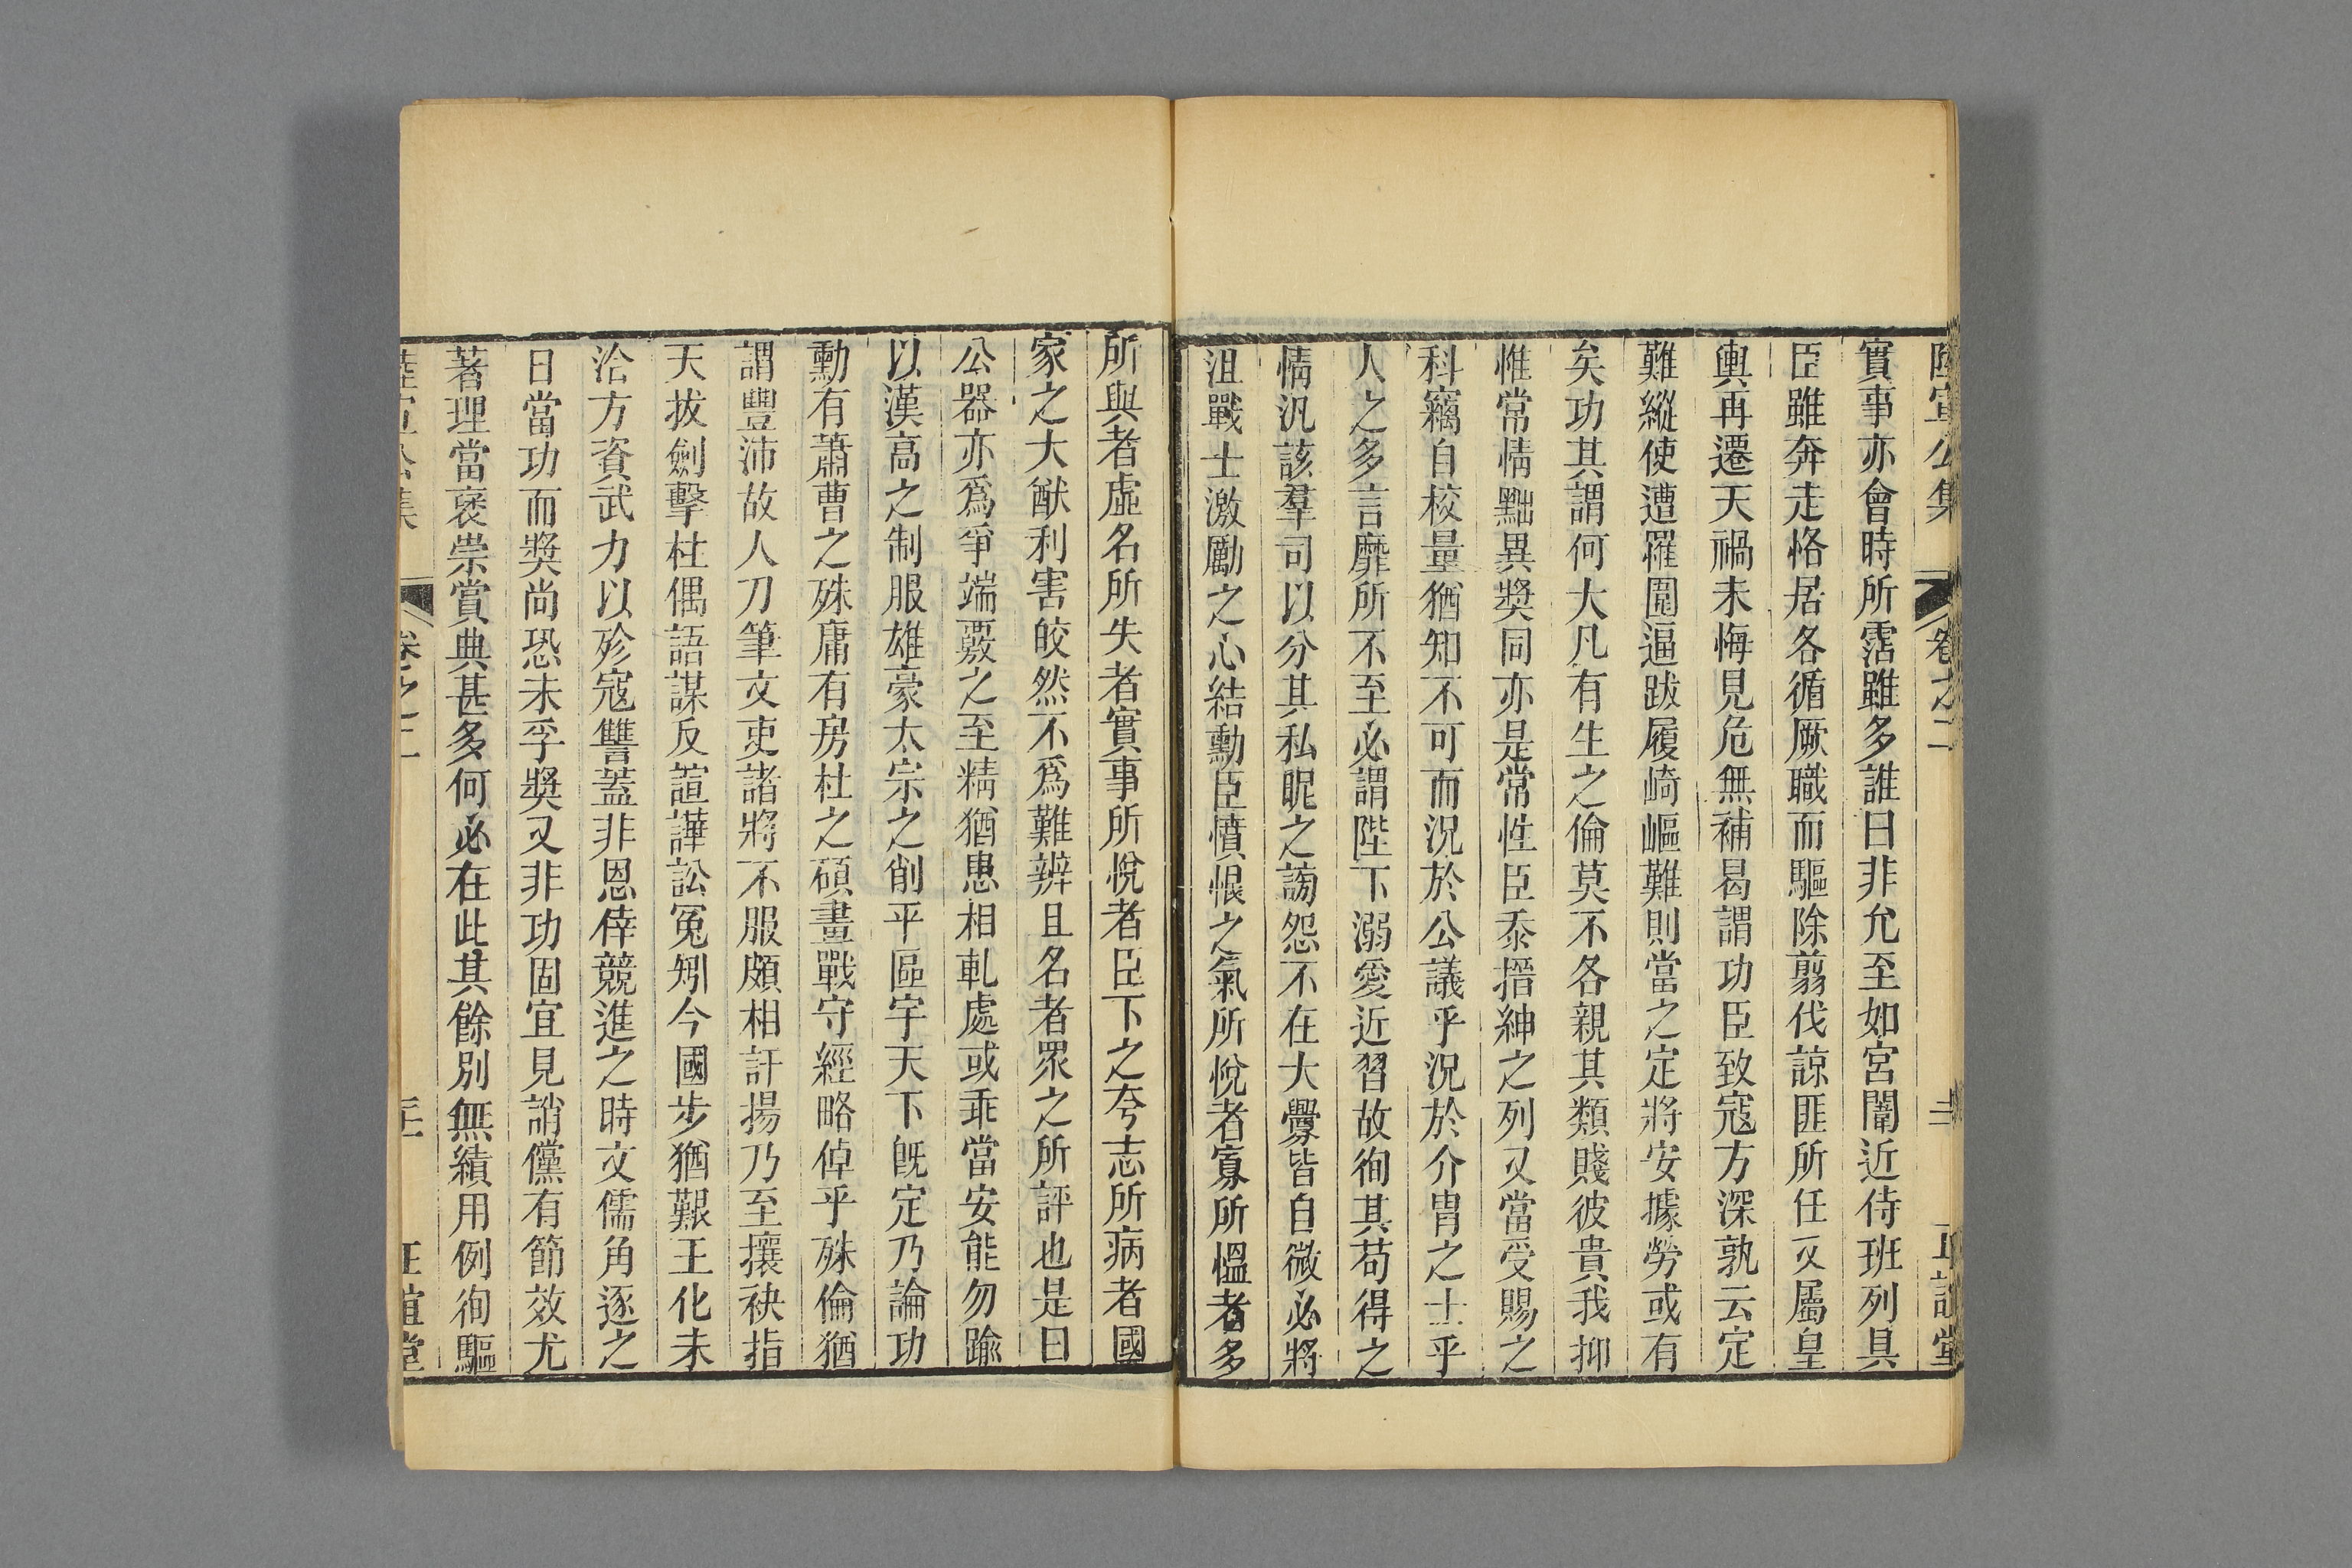 陸宣公集 卷之二 二 正誼堂
實事亦會時所霑雖多誰曰非允至如宮闈近侍班列具
臣雖奔走恪居各循厥職而驅除翦伐諒匪所任又屬皇
輿再遷天禍未悔見危無補曷謂功臣致寇方深孰云定
難縱使遭罹圍逼跋履崎嶇難則當之定將安據勞或有
矣功其謂何大凡有生之倫莫不各親其類賤彼貴我抑
惟常情黜異獎同亦是常性臣忝搢紳之列又當受賜之
科竊自校量猶知不可而況於公議乎況於介冑之士乎
人之多言靡所不至必謂陛下溺愛近習故徇其苟得之
情汎該羣司以分其私昵之謗怨不在大釁皆自微必將
沮戰士激勵之心結勳臣憤恨之氣所悅者寡所慍者多
所與者虛名所失者實事所悅者臣下之夸志所病者國
家之大猷利害皎然不爲難辨且名者眾之所評也是曰
公器亦爲爭端覈之至精猶患相軋處或乖當安能勿踰
以漢高之制服雄豪太宗之削平區宇天下既定乃論功
勳有蕭曹之殊庸有房杜之碩畫戰守經略倬乎殊倫猶
謂豐沛故人刀筆文吏諸將不服頗相訐揚乃至攘袂指
天拔劍擊柱偶語謀反諠譁訟冤矧今國步猶艱王化未
洽方資武力以殄寇讐蓋非恩倖競進之時文儒角逐之
日當功而獎尚恐未孚獎又非功固宜見誚儻有節效尤
著理當褒崇賞典甚多何必在此其餘別無績用例徇驅
陸宣公集 卷之二 正誼堂